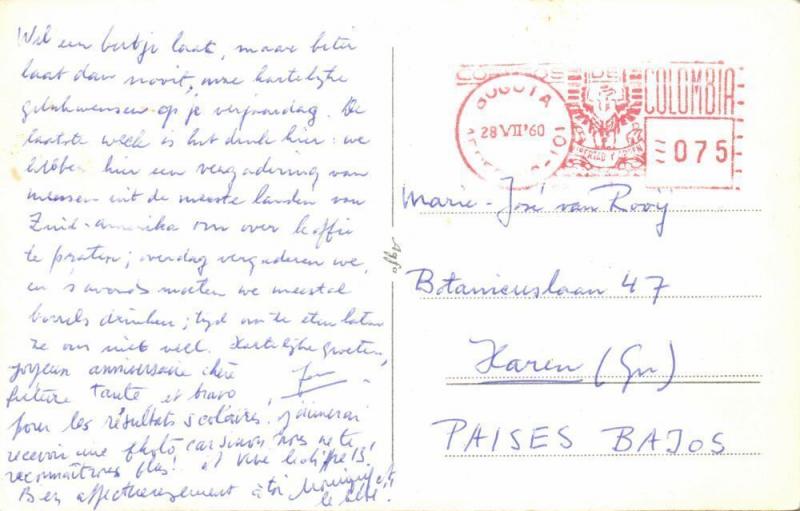 Wel een beetje laat, maar beter
laat dan nooit, onze hartelijke
gelukwensen op je verjaardag. De
laatste week is het druk hier: we
hebben hier een vergadering van
mensen uit de meeste landen van
Zuid-Amerika om over koffie
te praten; overdag vergaderen we,
en 's avonds moeten we meestal
borrels drinken; tijd om te eten laten
ze ons niet veel. Hartelijke groeten,
joyeux anniversaire chère
future Tante, et bravo
pour les résultats scolaires. j'aimerai
recevoir une photo, car sinon nous ne te
reconnaîtrons plas! et vive
Bien affectueusement à toi
le bébé!
Agfa
CORREOS DE COLOMBIA
BOGOTA
28 VII '60
LIBERTAD Y ORDEN
075
Marie-José van Rooij
Botanicuslaan 47
Haren (Gn)
PAISES BAJOS